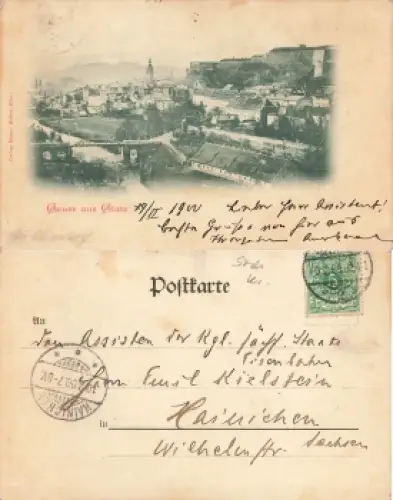 Gruss aus Glatz 19/II 1900 Lieber Herr Assistent!
beste Grüße von hier aus
Postkarte
An
den Assisten der Kgl. sächs. Staats
Eisenbahn
Herrn Emil Kielstein
in Hainichen
Wilhelmstr. Sachsen
HAINICHEN